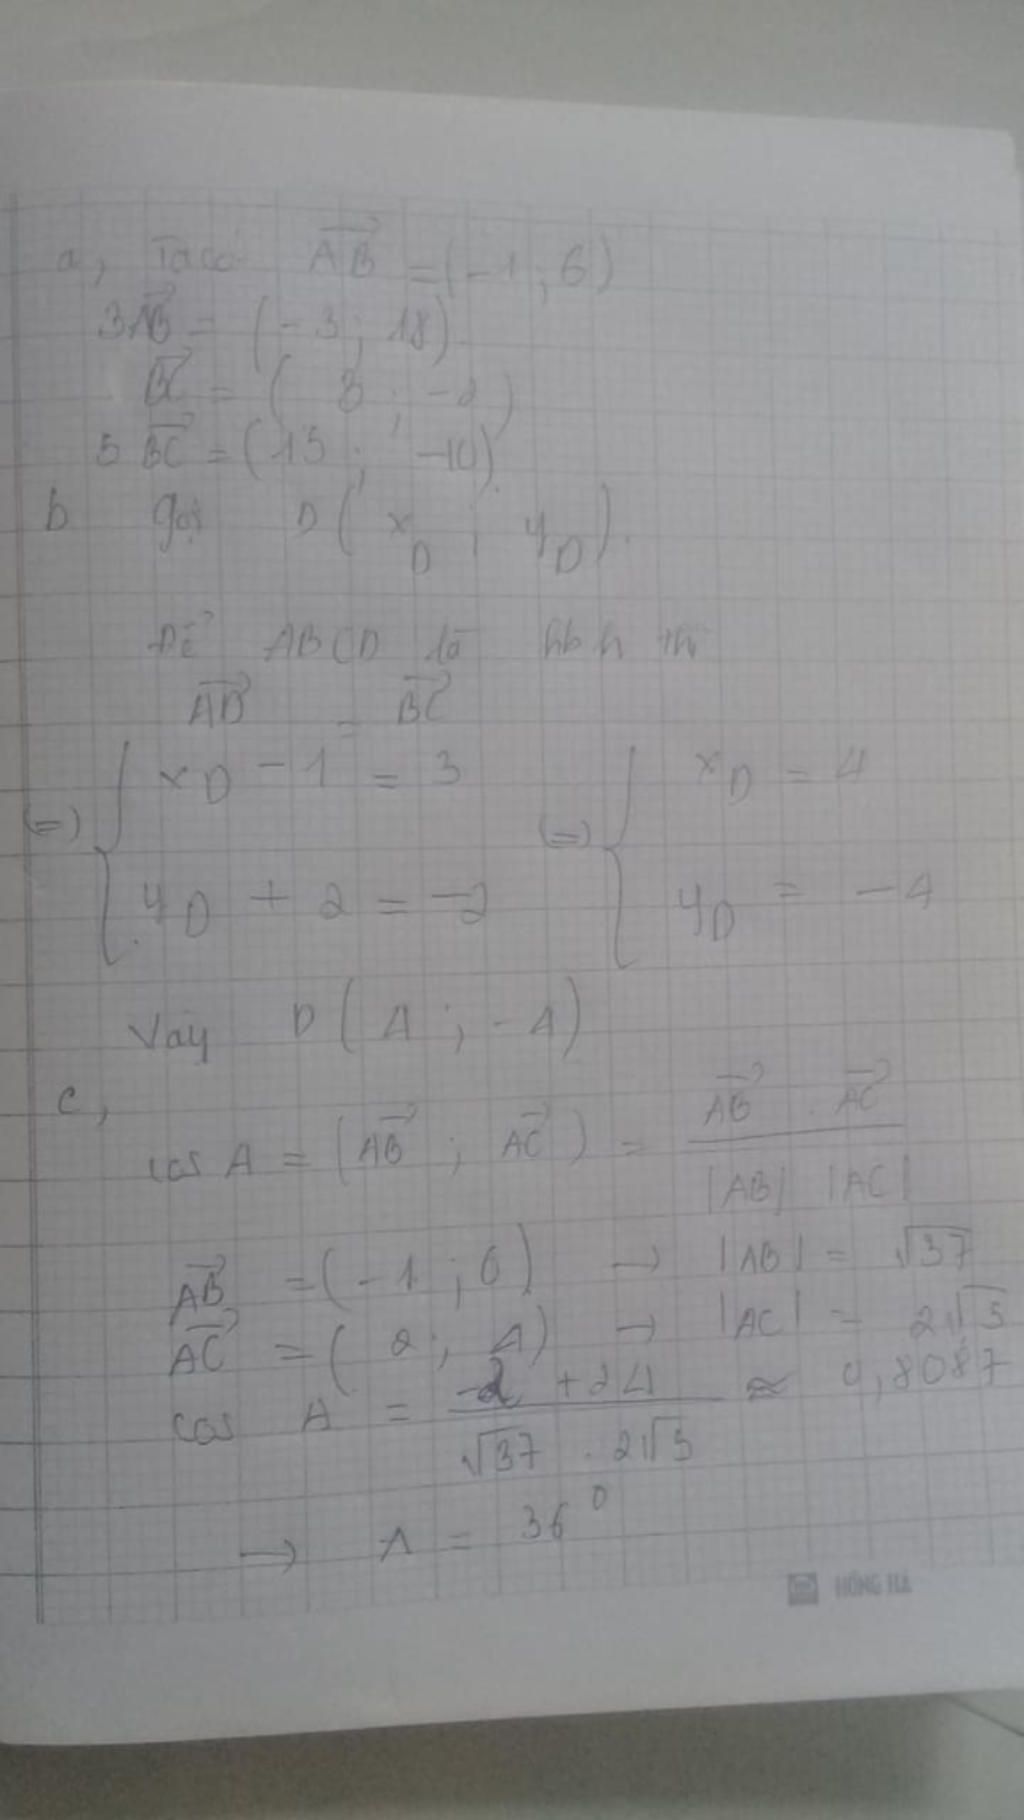 a, Ta có $\overrightarrow{AB} = (-1; 6)$
$3\overrightarrow{AB} = (-3; 18)$
$\overrightarrow{BC} = (3; -2)$
$5\overrightarrow{BC} = (15; -10)$
b Gọi $D(x_D; y_D)$.
Để ABCD là hbh thì
$\overrightarrow{AD} = \overrightarrow{BC}$
(=) { $x_D - 1 = 3$ (=) { $x_D = 4$
$y_D + 2 = -2$ $y_D = -4$
Vậy D(4; -4)
c,
$\cos A = (\overrightarrow{AB}; \overrightarrow{AC}) = \frac{\overrightarrow{AB} . \overrightarrow{AC}}{|AB| |AC|}$
$\overrightarrow{AB} = (-1; 6) \to |AB| = \sqrt{37}$
$\overrightarrow{AC} = (2; 4) \to |AC| = 2\sqrt{5}$
$\cos A = \frac{-2 + 24}{\sqrt{37} . 2\sqrt{5}} \approx 0,8087$
$\to A = 36^0$
HỒNG HÀ